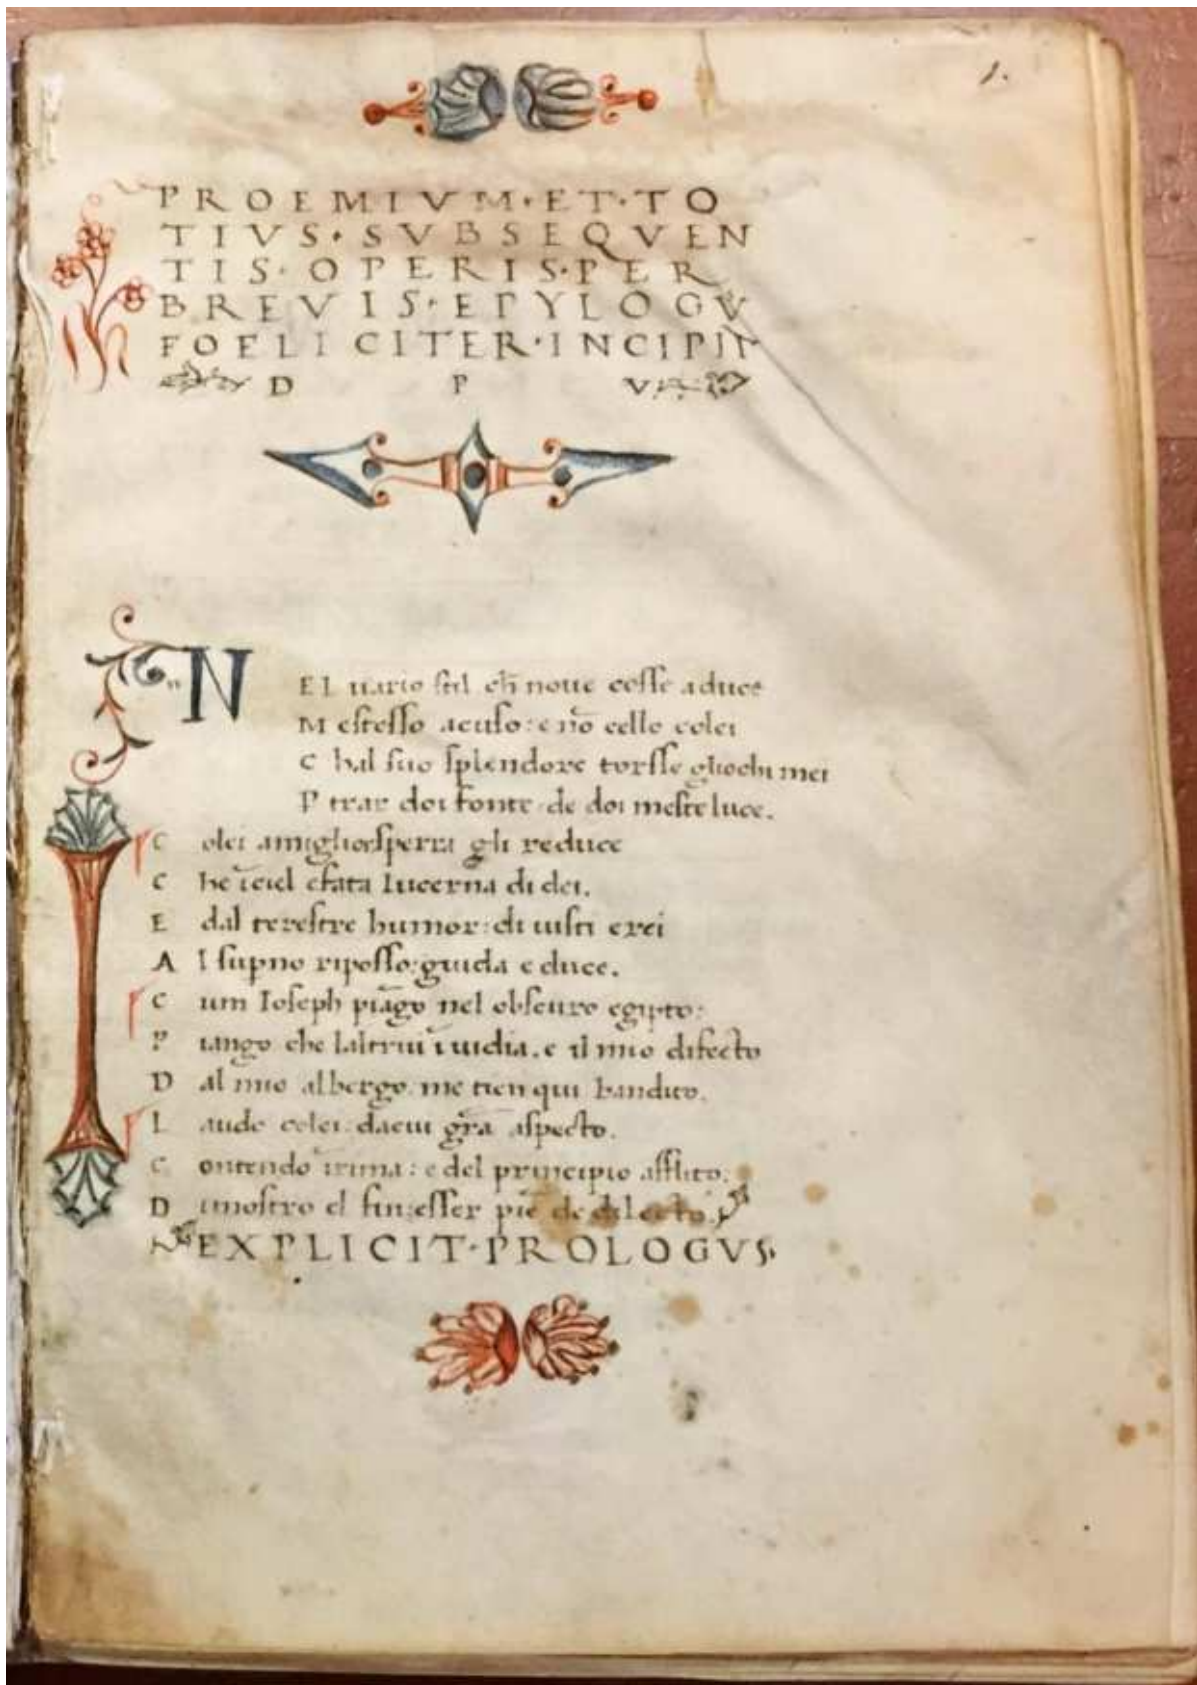 1.
PROEMIVM·ET·TO
TIVS·SVBSEQVEN
TIS·OPERIS·PER
BREVIS·EPYLOGV̄
FOELICITER·INCIPIT
D P V
NEL uario stil ch̄ noue cosse aduce
Mestesso acuso: e nō cello colei
Chal suo splendore torsse gliochi mei
P trar doi fonte de doi meste luce.
Colei amigliorsperra gli reduce
Che ī ciel efata lucerna di dei.
E dal terestre humor: di uisti erei
Al supno riposso: guida e duce.
Cum Ioseph piāgo nel obscuro egipto:
Piango che laltrui īuidia. e il mio difecto
Dal mio albergo. me tien qui bandito.
Laudo colei: dacui grā aspecto.
Contendo ī rima: e del principio afflito:
Dimostro el fin: esser piē de dilecto.
EXPLICIT·PROLOGVS·